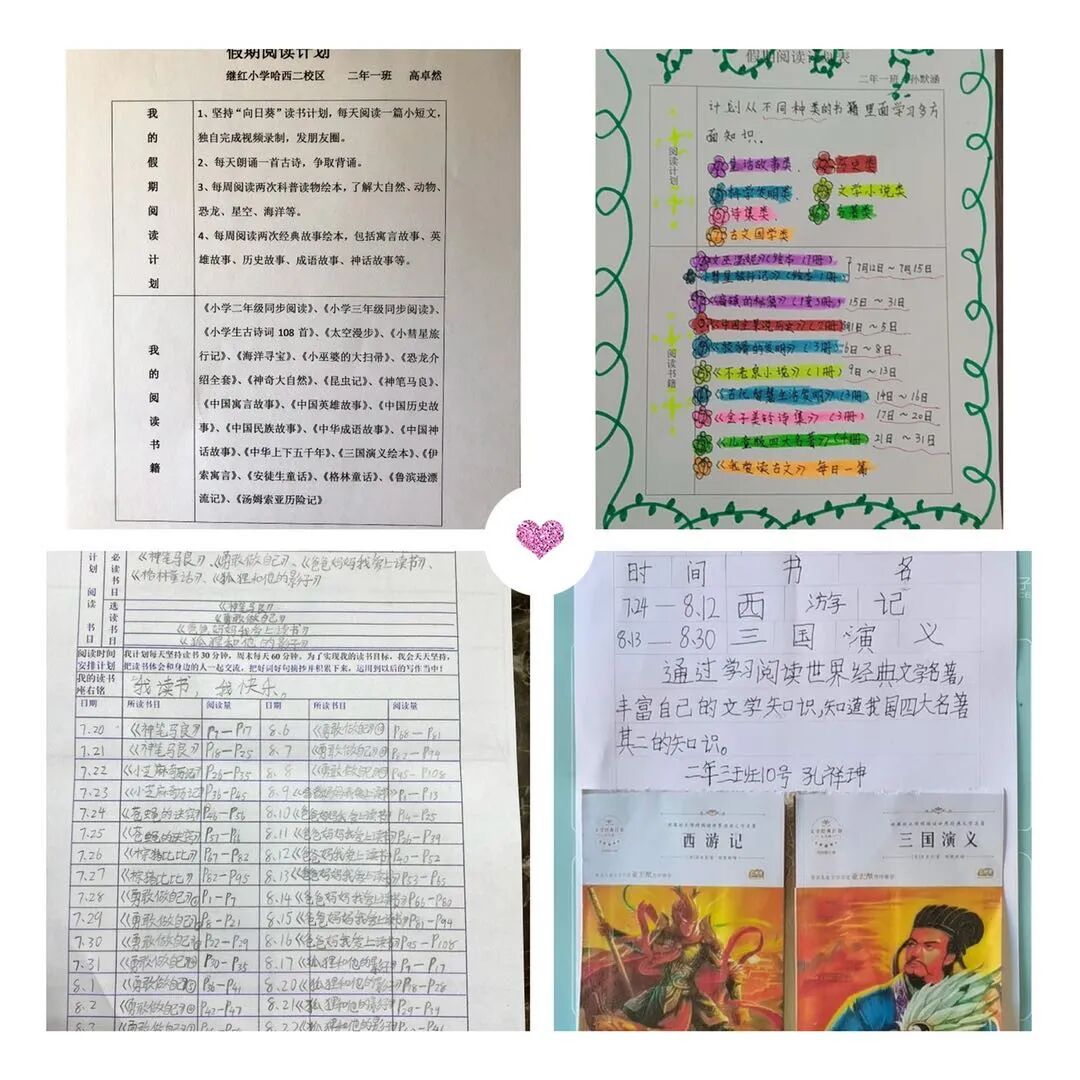 假期阅读计划
继红小学哈西二校区 二年一班 高卓然
我的假期阅读计划
1、坚持“向日葵”读书计划，每天阅读一篇小短文，
独自完成视频录制，发朋友圈。
2、每天朗诵一首古诗，争取背诵。
3、每周阅读两次科普读物绘本，了解大自然、动物、
恐龙、星空、海洋等。
4、每周阅读两次经典故事绘本，包括寓言故事、英
雄故事、历史故事、成语故事、神话故事等。
我的阅读书籍
《小学二年级同步阅读》、《小学三年级同步阅读》、
《小学生古诗词 108 首》、《太空漫步》、《小彗星旅
行记》、《海洋寻宝》、《小巫婆的大扫帚》、《恐龙介
绍全套》、《神奇大自然》、《昆虫记》、《神笔马良》、
《中国寓言故事》、《中国英雄故事》、《中国历史故
事》、《中国民族故事》、《中华成语故事》、《中国神
话故事》、《中华上下五千年》、《三国演义绘本》、《伊
索寓言》、《安徒生童话》、《格林童话》、《鲁滨逊漂
流记》、《汤姆索亚历险记》
假期阅读计划表
二年一班 孙默涵
阅读计划
计划从不同种类的书籍里面学习多方
面知识.
生活故事类 历史类
科学发明类 文学小说类
诗集类 名著类
古文国学类
阅读书籍
7月12日～7月15日
15日～31日
1日～5日
6日～8日
《不老泉小说》（1册） 9日～13日
《古代智慧生活发明》（3册） 14日～16日
《金子美铃诗集》（3册） 17日～20日
《儿童版四大名著》（4册） 21日～31日
《我爱读古文》 每日一篇
计划阅读书目
必读书目
《神笔马良》、《勇敢做自己》、《爸爸妈妈我爱上读书》、
《格林童话》、《狐狸和他的影子》
选读书目
《神笔马良》
《勇敢做自己》
《爸爸妈妈我爱上读书》
《狐狸和他的影子》
阅读时间安排计划
我计划每天坚持读书30分钟，周末每天60分钟，为了实现我的读书目标，我会天天坚持，
把读书体会和身边的人一起交流，把好词好句摘抄并积累下来，运用到以后的写作当中！
我的读书座右铭
我读书，我快乐。
日期 所读书目 阅读量 日期 所读书目 阅读量
7.20 《神笔马良》 P7—P17 8.6 《勇敢做自己》 P68—P81
7.21 《神笔马良》 P18—P25 8.7 《勇敢做自己》 P82—P94
7.22 P26—P35 8.8 《勇敢做自己》 P95—P108
7.23 P36—P45 8.9 《爸爸妈妈我爱上读书》 P1—P13
7.24 P46—P56 8.10 《爸爸妈妈我爱上读书》 P14—P25
7.25 P57—P66 8.11 《爸爸妈妈我爱上读书》 P26—P39
7.26 P67—P82 8.12 《爸爸妈妈我爱上读书》 P40—P52
7.27 8.13 《爸爸妈妈我爱上读书》 P53—P65
7.28 《勇敢做自己》 P1—P7 8.14 《爸爸妈妈我爱上读书》
7.29 《勇敢做自己》 P8—P21 8.15 《爸爸妈妈我爱上读书》
7.30 《勇敢做自己》 P22—P29 8.16 《爸爸妈妈我爱上读书》 P95—P108
7.31 《勇敢做自己》 P30—P35 8.17 《狐狸和他的影子》 P7—P17
8.1 《勇敢做自己》 P36—P41 8.20 《狐狸和他的影子》 P18—P28
8.2 《勇敢做自己》 P42—P47 8.21 《狐狸和他的影子》 P29—P39
时间 书名
7.24—8.12 西游记
8.13—8.30 三国演义
通过学习阅读世界经典文学名著，
丰富自己的文学知识，知道我国四大名著
其二的知识。
二年三班10号 孔祥珅
西游记
三国演义